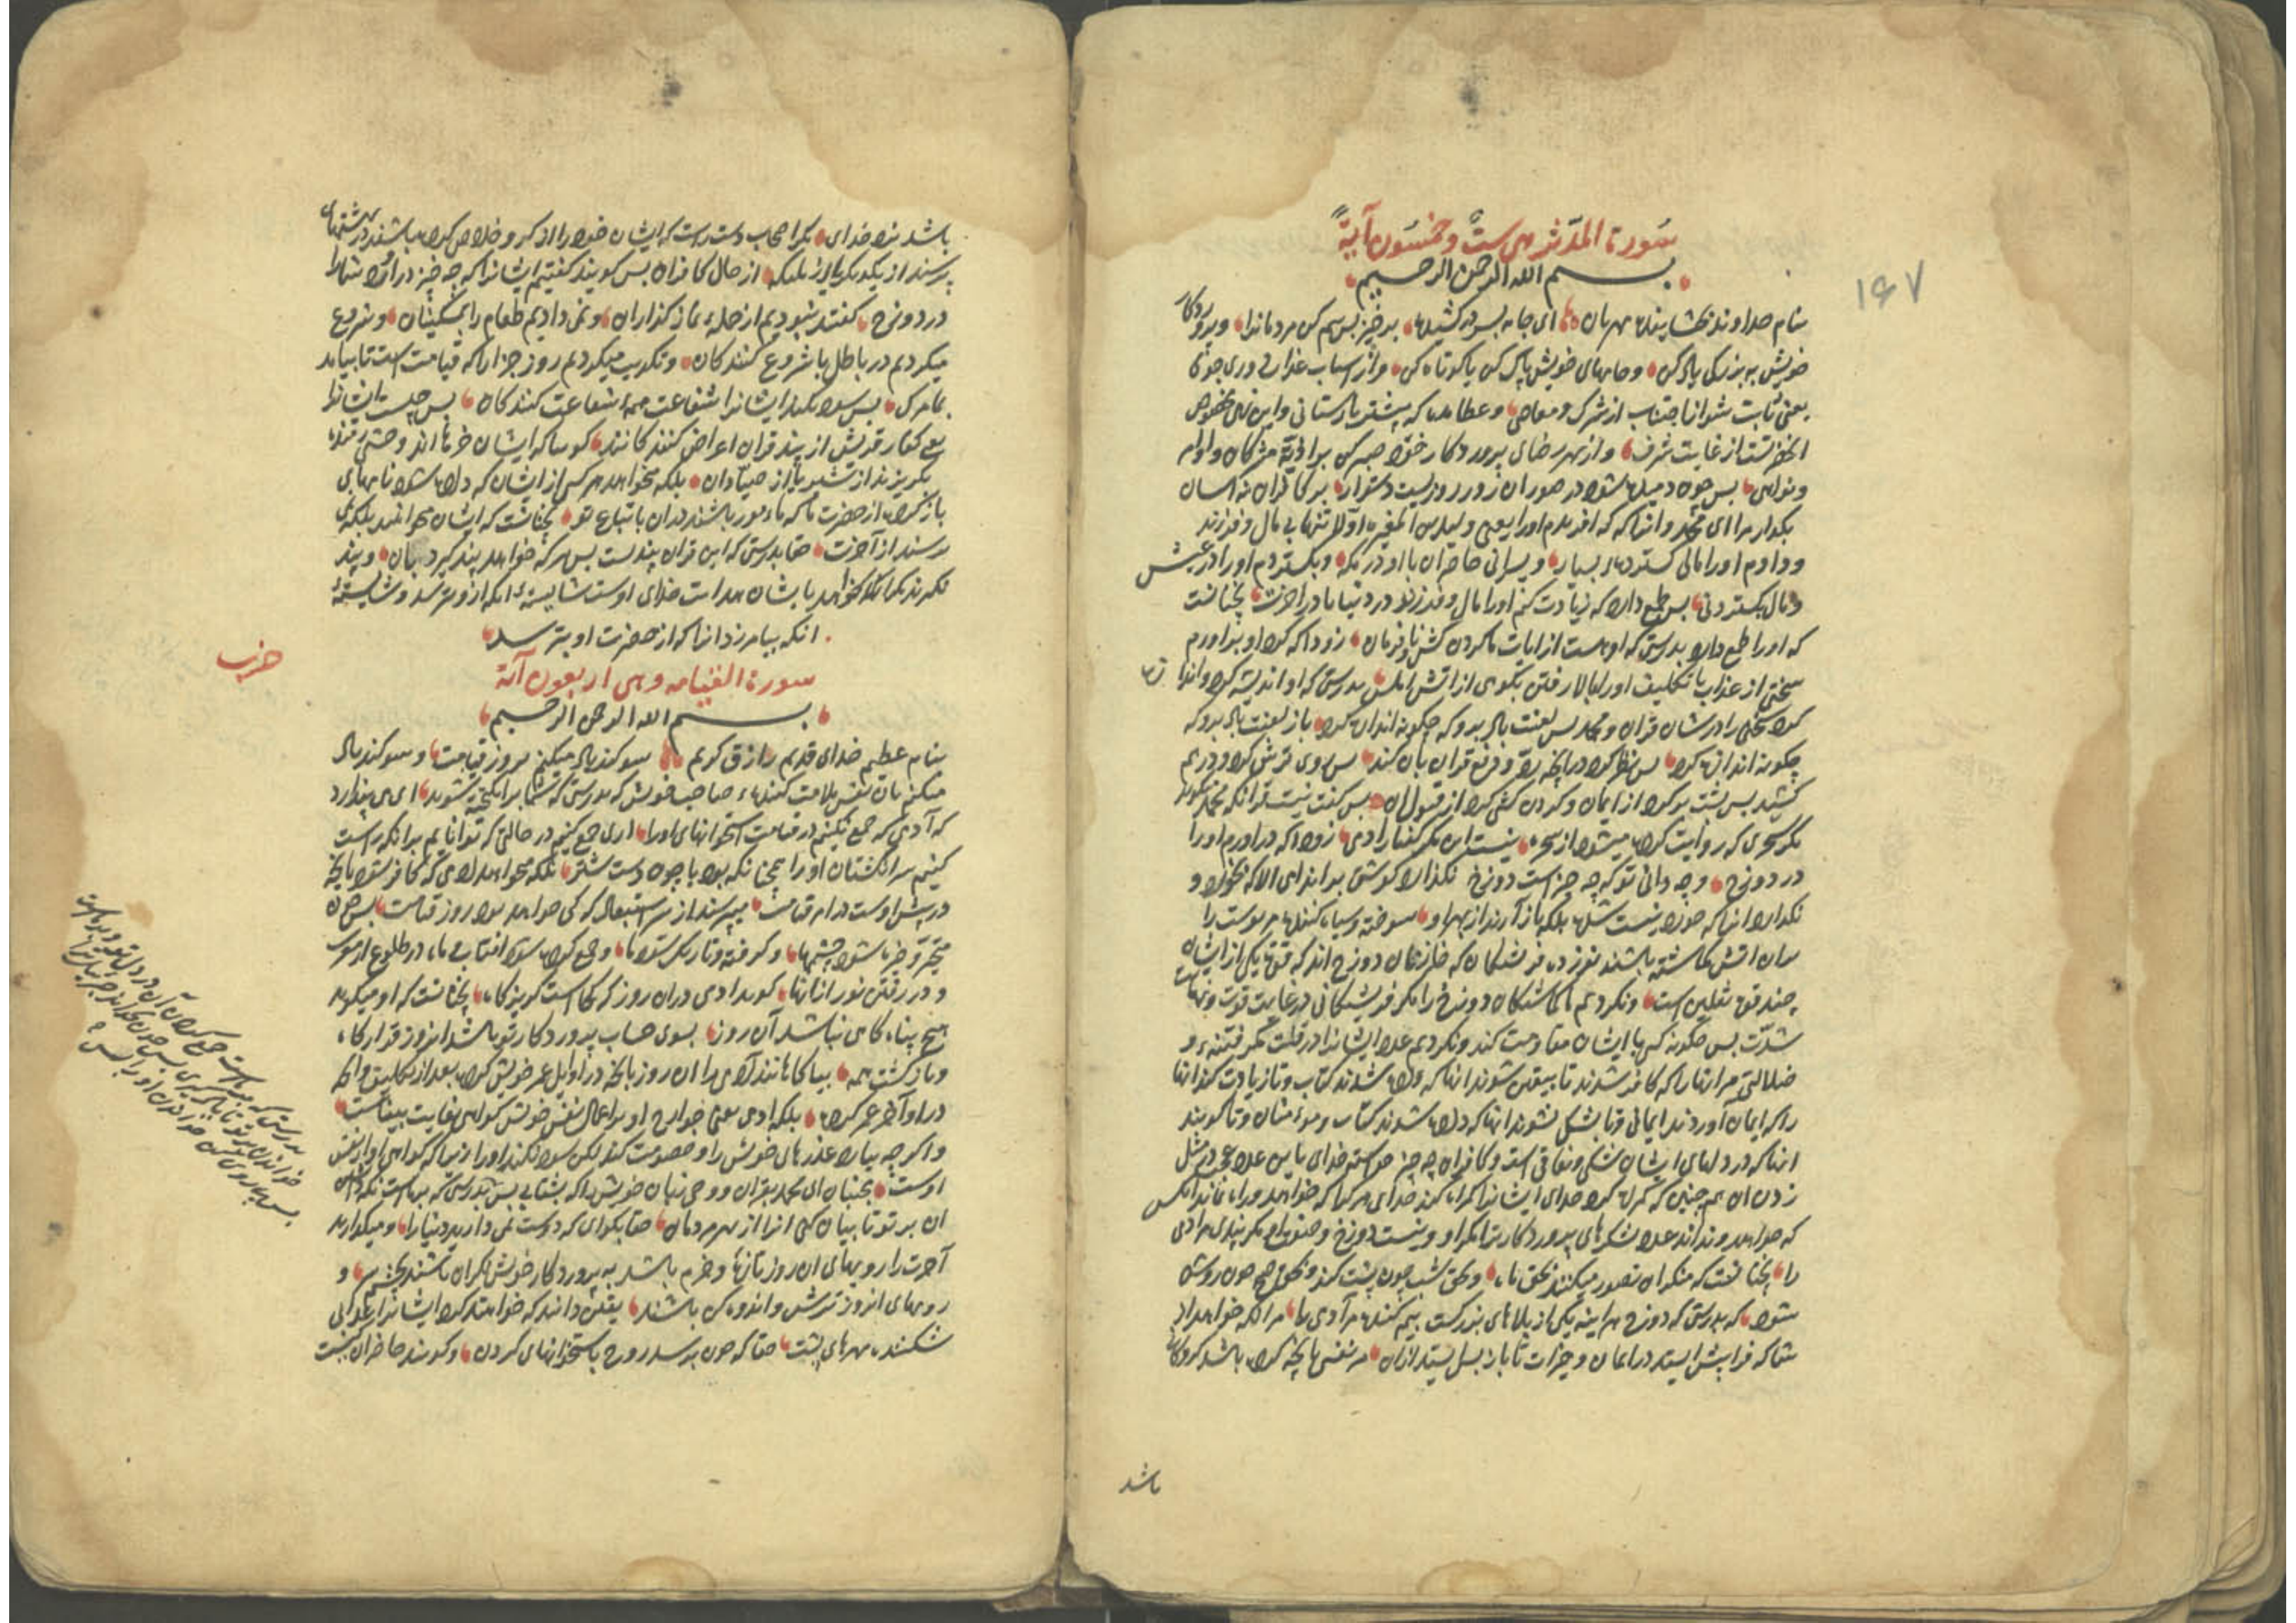 سورة المدّثر هی ستّ وخمسون آیة
بسم الله الرحمن الرحیم
۱۶۷
بنام خداوند بخشاینده مهربان ای جامه بسر در کشیده برخیز بس بیم کن مردمانرا و پروردکار
خویش به بزرکی یاد کن و جامهای خویش پاک کن یا کوتاه کن و از اسباب عذاب دوری جوی
یعنی ثابت شو بر اجتناب از شرک و معاصی و عطا مده که بیشتر بازستانی و این نهی مخصوص
انحضرتست از غایت شرف و از بهر رضای پرورد کار خود صبر کن بر اذیة مشرکان و اوامر
و نواهی بس چون دمیده شود در صور ان روز روزیست دشوار بر کافران نه اسان
بکذار مرا ای محمد و انرا که افریدم اورا یعنی ولید بن المغیره اولا تنها بی مال و فرزند
و دادم اورا مالی کسترده بسیار و پسرانی حاضران با او در مکه و بکستردم اورا در عیش
و مال بکستردنی بس طمع دارد که زیادت کنم اورا مال و فرزند در دنیا یا در اخرت نچنانست
که اورا طمع دارد بدرستی که او هست از ایات ما کردن کش و نافرمان زود باشد که او بر اورم
سختی از عذاب یا تکلیف اورا ببالا رفتن بکوهی از اتش بدرستی که او اندیشه کرد و اندازه
کرد سخنی را در شان قران و محمد بس لعنت باد برو که چکونه اندازه کرد باز لعنت باد برو که
چکونه اندازه کرد بس نظر کرد در قران بس روی ترش کرد و درهم
کشید بس پشت برکرد از ایمان و کردن کشی کرد از قبول ان بس کفت نیست قرانکه محمد
مکر سحری که روایت کرده میشود از سحره نیست این مکر کفتار ادمی زود که دراورم اورا
در دوزخ و چه دانی تو که چه چیز است دوزخ نکذارد کوشتی بر اندای الا که بخورد و
نکذارد انرا که نیست شده بلکه باز آرند از بهر او سوخته و سیاه کننده مر پوست را
بران اتش کماشته باشند نوزده فرشتکان که خازنان دوزخ اند که قوت یکی از ایشان
چند قوت ثقلین است و نکردیم ما کماشتکان دوزخ را مکر فرشتکانی در غایت قوت و نهایت
شدّت بس چکونه کس با ایشان مقاومت کند و نکردیم عدد ایشانرا در قلت مکر فتنه و
ضلالتی مر انهارا که کافر شدند تا بیقین شوند انها که داده شدند کتاب و تا زیادت کند انها
را که ایمان آوردند ایمانی و تا بشک نشوند انها که داده شوند کتاب و مومنان و تا کویند
انها که در دلهای ایشان شکی و نفاقی است و کافران چه چیز خواسته خدای باین عدد عجب در مثل
زدن ان همچنین که کمراه کرد خدای ایشانرا کمراه کند خدای هر کرا که خواهد و راه نماید انکس
که خواهد و نداند عدد لشکرهای پرورد کار ترا مکر او و نیست دوزخ و صفت او مکر پندی مر ادمی
را نچنانست که منکران تصور میکنند بحق ماه و بحق شب چون پشت کند و بحق صبح چون روشن
شود که بدرستی که دوزخ هر اینه یکی از بلاهای بزرکست بیم کننده مر آدمی را مر انکه خواهد از
شما که فرا پیش ایستد در ایمان و خیرات تا باز پس ایستد ازان هر نفسی بانچه کرده باشد کروکان
باشد
باشد نزد خدای مکر اصحاب دست راست که ایشان خود را از کرو خلاص کرده باشند در بهشتهای
پرسند از یکدیکر یا از ملیکه از حال کافران بس کویند کفتیم ایشانرا که چه چیز دراورد شمارا
در دوزخ کفتند نبودیم از جمله نماز کذاران و نمی دادیم طعام را بمسکینان و شروع
میکردیم در باطل با شروع کنندکان و تکذیب میکردیم روز جزارا که قیامت است تا بیامد
بما مرک بس سود نکند ایشانرا شفاعت همه شفاعت کنندکان بس چیست ایشانرا
یعنی کفار قریش از پند قران اعراض کنندکانند کوییا که ایشان خرها اند وحشی رمنده
بکریزند از شیر یا از صیادان بلکه میخواهد هر کسی از ایشان که داده شود نامهای
باز کرده از حضرت ما که مامور باشند دران باتباع تو نچنانست که ایشان میخواهند بلکه نمی
ترسند از آخرت حقا بدرستی که این قران پندیست بس هر که خواهد پند کیرد بان و پند
نکیرند مکر انکه خواهد بایشان هدایت خدای اوست شایسته انکه ازو ترسند و شایسته
انکه بیامرزد انرا که از حضرت او بترسد
حزب
سورة القیامه و هی اربعون آیة
بسم الله الرحمن الرحیم
بنام عظیم خدای قدیم رازق کریم سوکند یاد میکنم بروز قیامت و سوکند یاد
میکنم بان نفس ملامت کننده صاحب خویش که بدرستی که شما برانکیخته شوید ای می پندارد
که آدمی که جمع نکنیم در قیامت استخوانهای اورا اری جمع کنیم در حالتی که توانایم بر انکه راست
کنیم سر انکشتان اورا چنانکه بود یا چون دست شتر بلکه میخواهد ادمی که کافر شود بانچه
در پیش اوست در امر قیامت میپرسد از سر استبعاد که کی خواهد بود روز قیامت بس چون
متحیّر و خیره شود چشمها و کرفته و تاریک شود ماه و جمع کرده شود افتاب با ماه در طلوع از مغرب
و در رفتن نور از انها کوید ادمی دران روز که کجاست کریزکاه نچنانست که او میکوید
هیچ پناه کاهی نباشد آن روز بسوی حساب پرورد کار تو باشد انروز قرارکاه
و بازکشت همه بیاکاهانند آدمی را ان روز بانچه در اوایل عمر خویش کرده بعد از تکلیف و انچه
در اواخر عمر کرده بلکه ادمی یعنی جوارح او بر اعمال نفس خویش کواهی بغایت بیناست
و اکر چه بیارد عذرهای خویش را و خصومت کند لکن سود نکند اورا زیرا که کواهی او از نفس
اوست مجنبان ای محمد بقران و وحی زبان خویش را که بشتابی بس بدرستی که بر ماست نکه داشتن
ان بر تو تا بیان کنی انرا از بهر مردمان حقا بکوای که دوست نمی دارید دنیارا و میکذارید
آخرت را رویهای ان روز تازه و خرم باشد به پرورد کار خویش نکران باشند بچشم سر و
رویهای انروز ترش و اندوهکن باشند یقین دانند که خواهند کرد ایشانرا عذابی
شکننده مهرهای پشت حقا که چون برسد روح باستخوانهای کردن و کویند حاضران کیست
بدرستی که بر ماست جمع کردن آن در دل تو و
خواندن بر تو تا یاد کیری بس چون بخواند جبرئیل
بس پیاپی کن خواندن او را بس